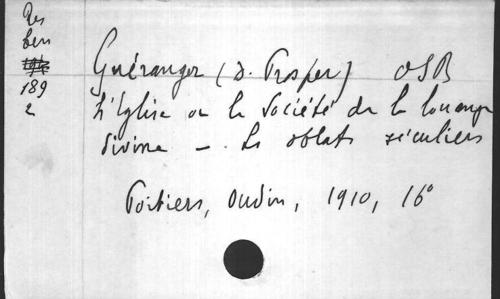 Res
Ben
189
2
Guéranger (D. Prosper) OSB
L'Eglise ou la Société de la louange
divine - Les oblats séculiers
Poitiers, Oudin, 1910, 16°